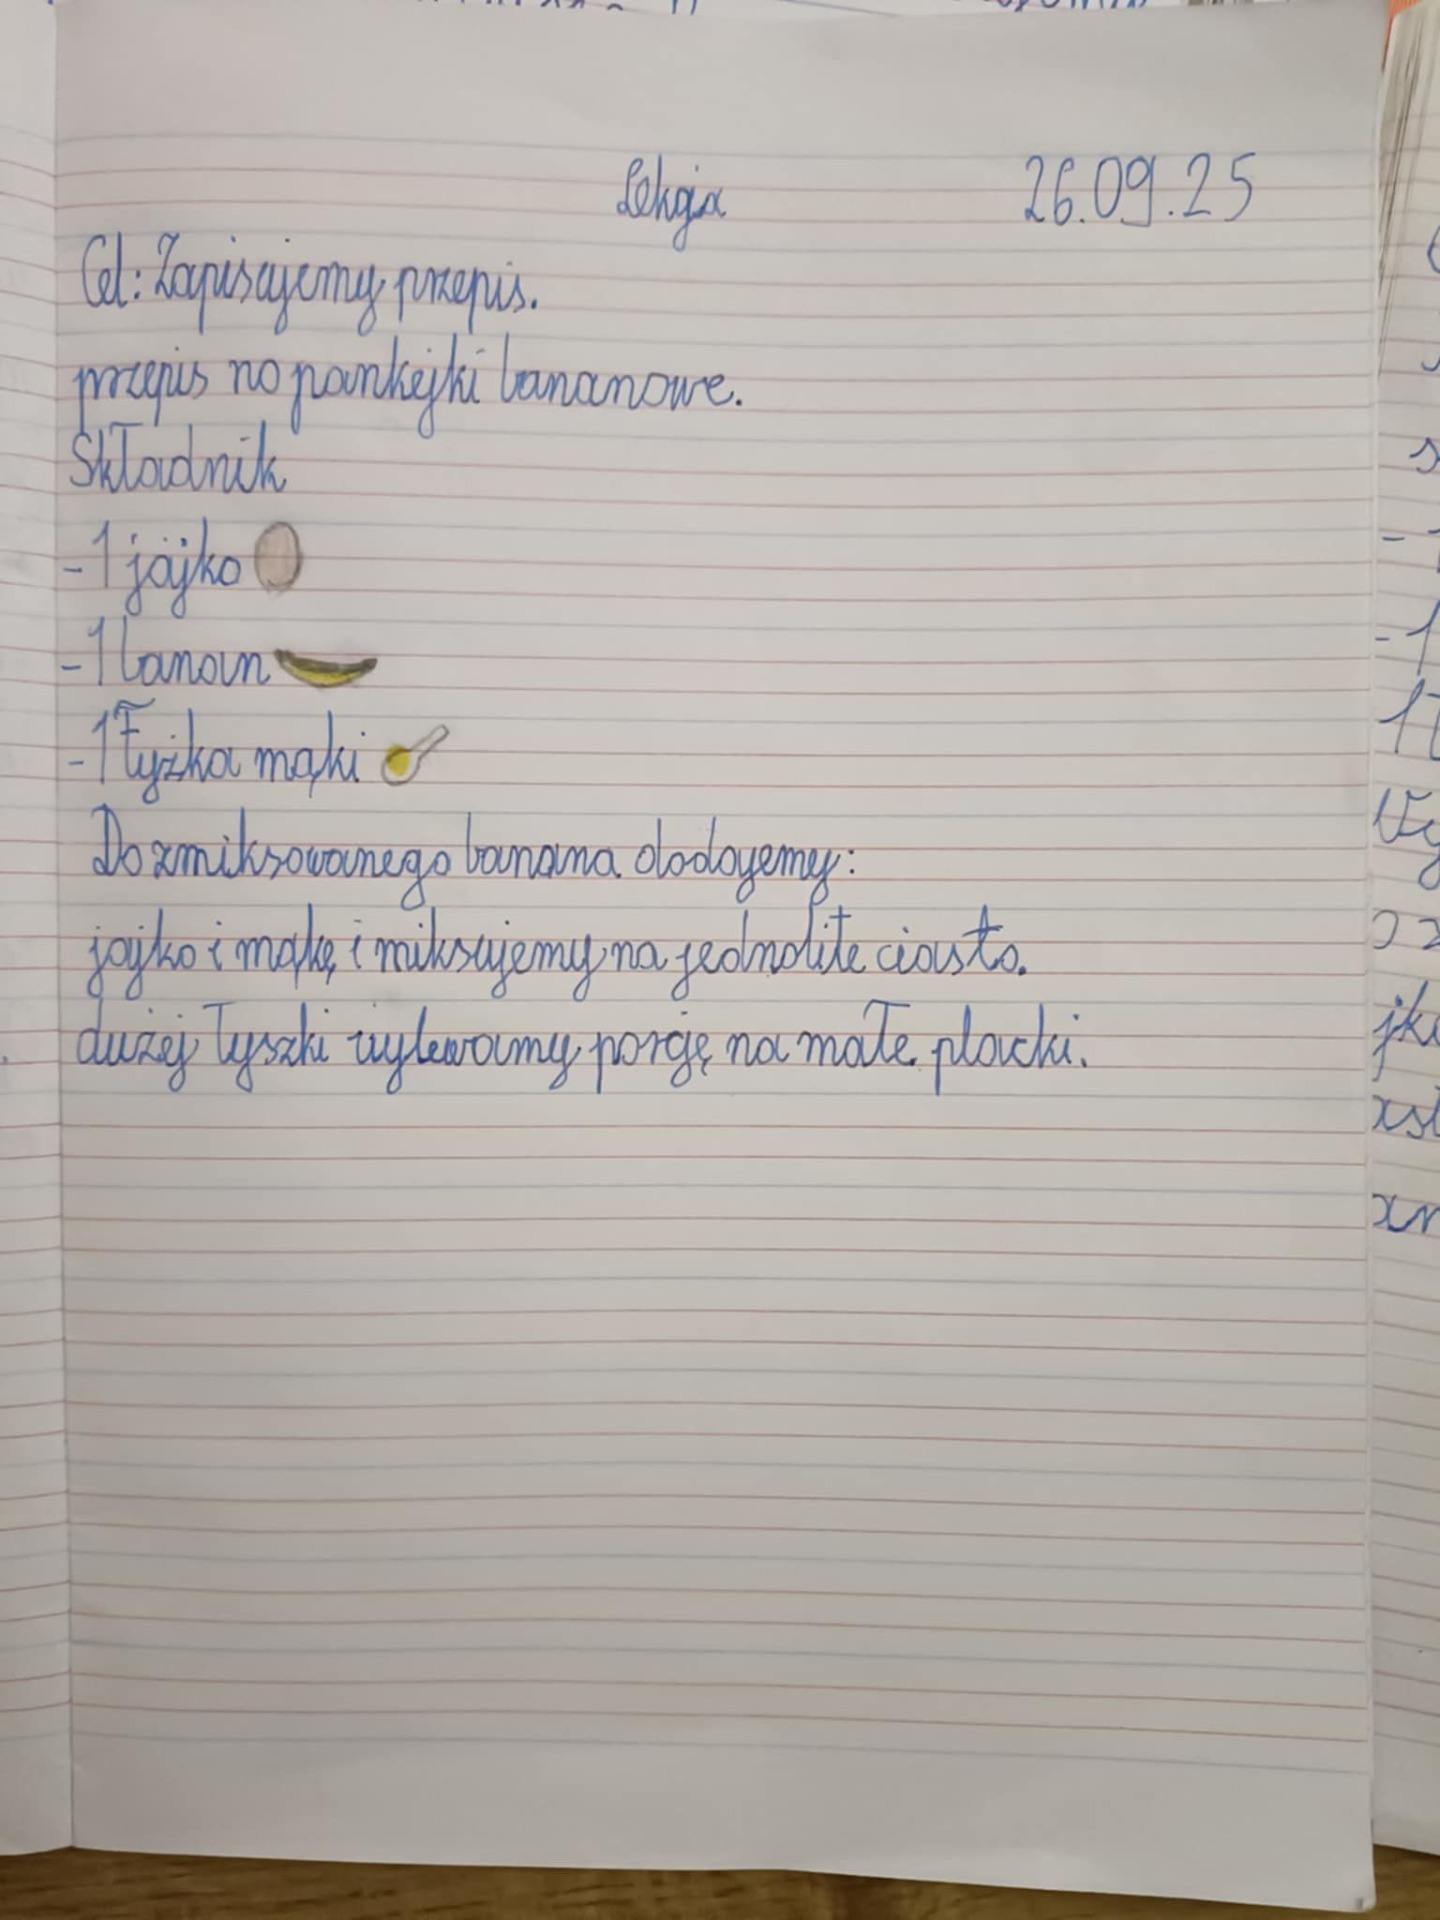 Lekcja 26.09.25
Cel: Zapisujemy przepis.
przepis na pankejki bananowe.
Składnik
-1 jajko
-1 banan
-1 łyżka mąki
Do zmiksowanego banana dodajemy:
jajko i mąkę i miksujemy na jednolite ciasto.
dużej łyszki wylewamy porcję na małe placki.